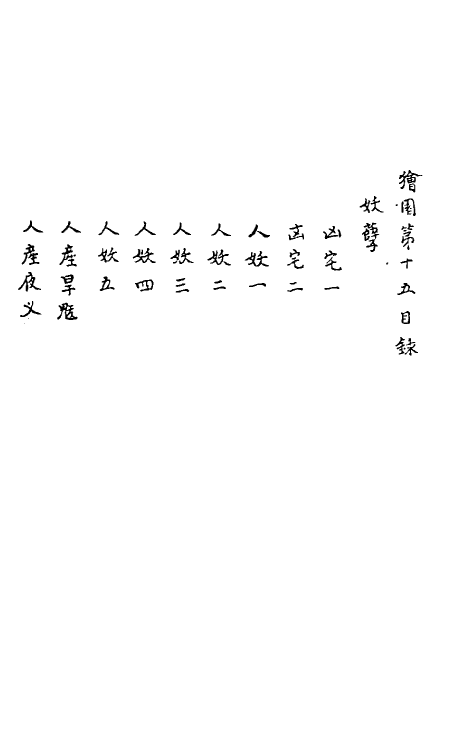 獪園第十五目録
妖孽
凶宅一
凶宅二
人妖一
人妖二
人妖三
人妖四
人妖五
人產旱魃
人產夜叉